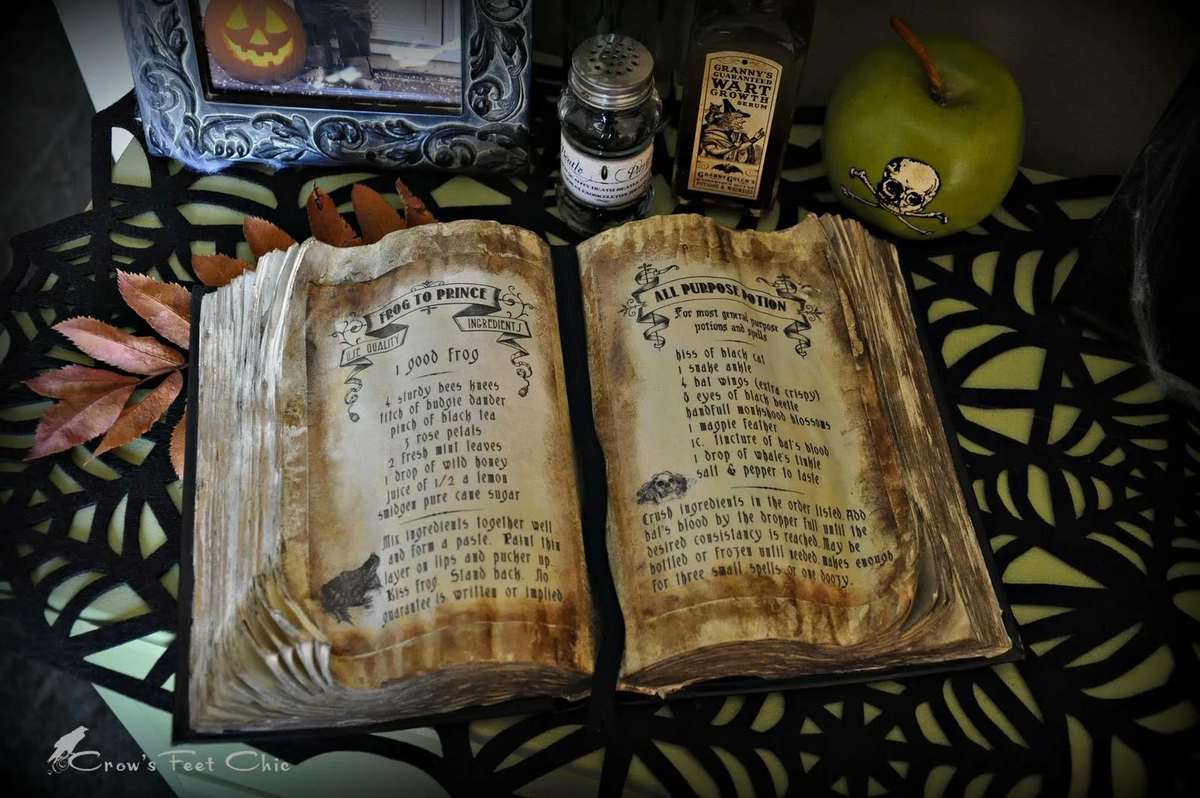 GRANNY'S
GUARANTEED
WART
GROWTH
SERUM
GRANNY GULEN'S
POTIONS &
Beetle
DEATH
FROG TO PRINCE
USE QUALITY
INGREDIENTS
1 good frog
4 sturdy bees knees
titch of budgie dander
pinch of black tea
3 rose petals
2 fresh mint leaves
1 drop of wild honey
juice of 1/2 a lemon
smidgen pure cane sugar
Mix ingredients together well
and form a paste. Paint thin
layer on lips and pucker up.
Kiss frog. Stand back. No
guarantee is written or implied
ALL PURPOSE POTION
For most general purpose
potions and spells
hiss of black cat
1 snake ankle
4 bat wings (extra crispy)
8 eyes of black beetle
handfull monkshood blossoms
1 magpie feather
1c. tincture of bat's blood
1 drop of whale's tinkle
salt & pepper to taste
Crush ingredients in the order listed. Add
bat's blood by the dropper full until the
desired consistancy is reached. May be
bottled or frozen until needed. makes enough
for three small spells or one doozy.
Crow's Feet Chic